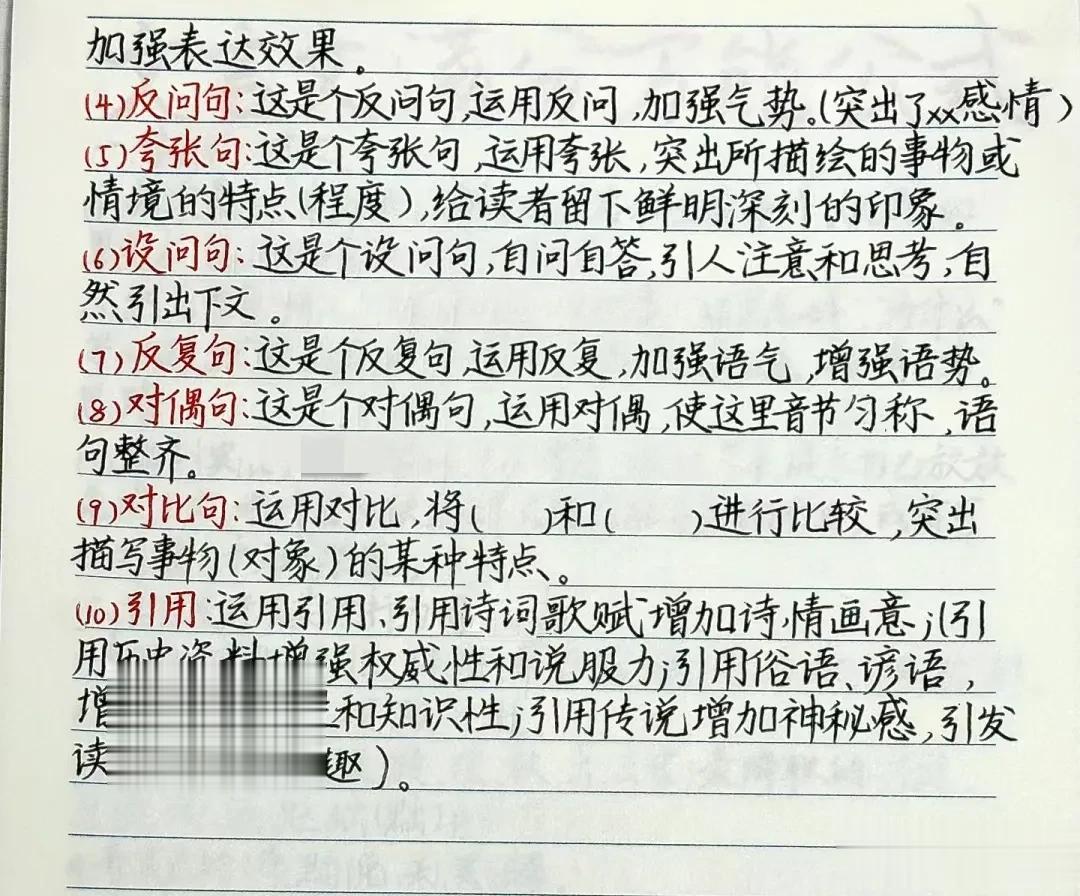 加强表达效果。
(4)反问句:这是个反问句,运用反问,加强气势。(突出了xx感情)
(5)夸张句:这是个夸张句,运用夸张,突出所描绘的事物或
情境的特点(程度),给读者留下鲜明深刻的印象。
(6)设问句:这是个设问句,自问自答,引人注意和思考,自
然引出下文。
(7)反复句:这是个反复句,运用反复,加强语气,增强语势。
(8)对偶句:这是个对偶句,运用对偶,使这里音节匀称,语
句整齐。
(9)对比句:运用对比,将( )和( )进行比较,突出
描写事物(对象)的某种特点。
(10)引用:运用引用、引用诗词歌赋增加诗情画意;(引
用历史资料增强权威性和说服力;引用俗语、谚语,
增 和知识性;引用传说增加神秘感,引发
读 趣)。